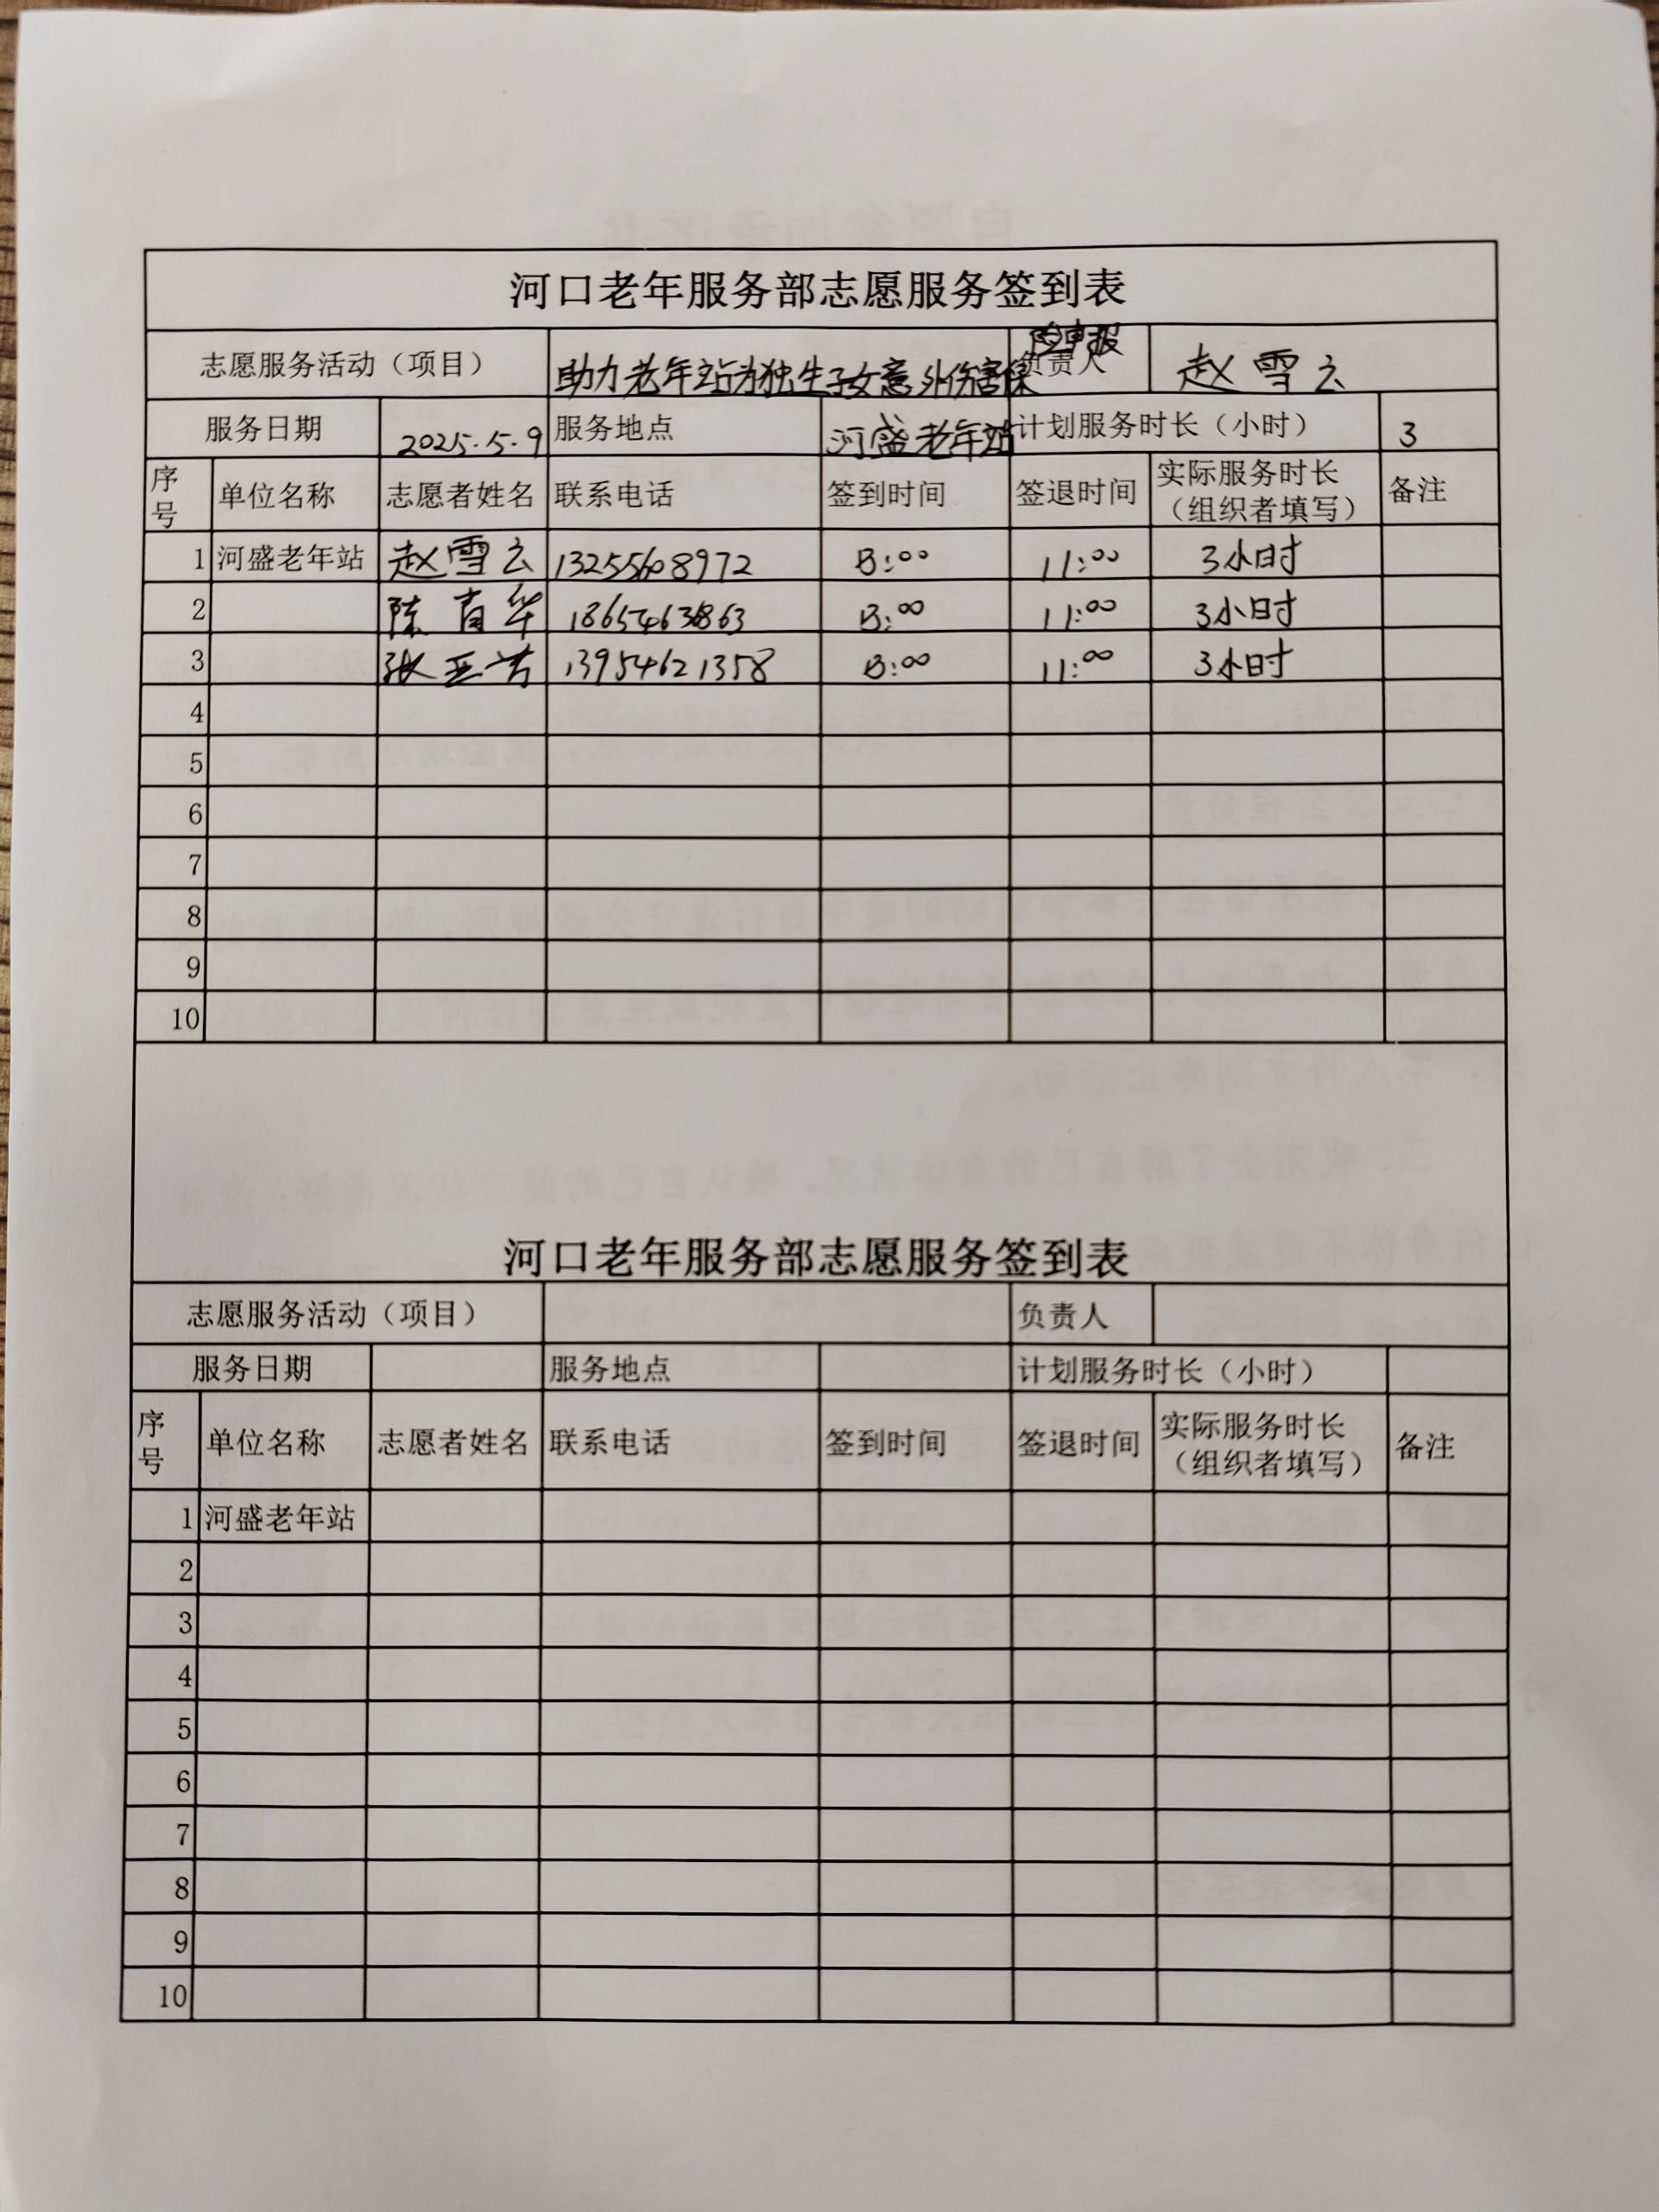 河口老年服务部志愿服务签到表
志愿服务活动（项目） 助力老年站为独生子女意外伤害保险申报 负责人 赵雪云
服务日期 2025.5.9 服务地点 河盛老年站 计划服务时长（小时） 3
序号 单位名称 志愿者姓名 联系电话 签到时间 签退时间 实际服务时长（组织者填写） 备注
1 河盛老年站 赵雪云 13255608972 8:00 11:00 3小时
2 陈 华 8:00 11:00 3小时
3 张 13954621358 8:00 11:00 3小时
4
5
6
7
8
9
10
河口老年服务部志愿服务签到表
志愿服务活动（项目） 负责人
服务日期 服务地点 计划服务时长（小时）
序号 单位名称 志愿者姓名 联系电话 签到时间 签退时间 实际服务时长（组织者填写） 备注
1 河盛老年站
2
3
4
5
6
7
8
9
10